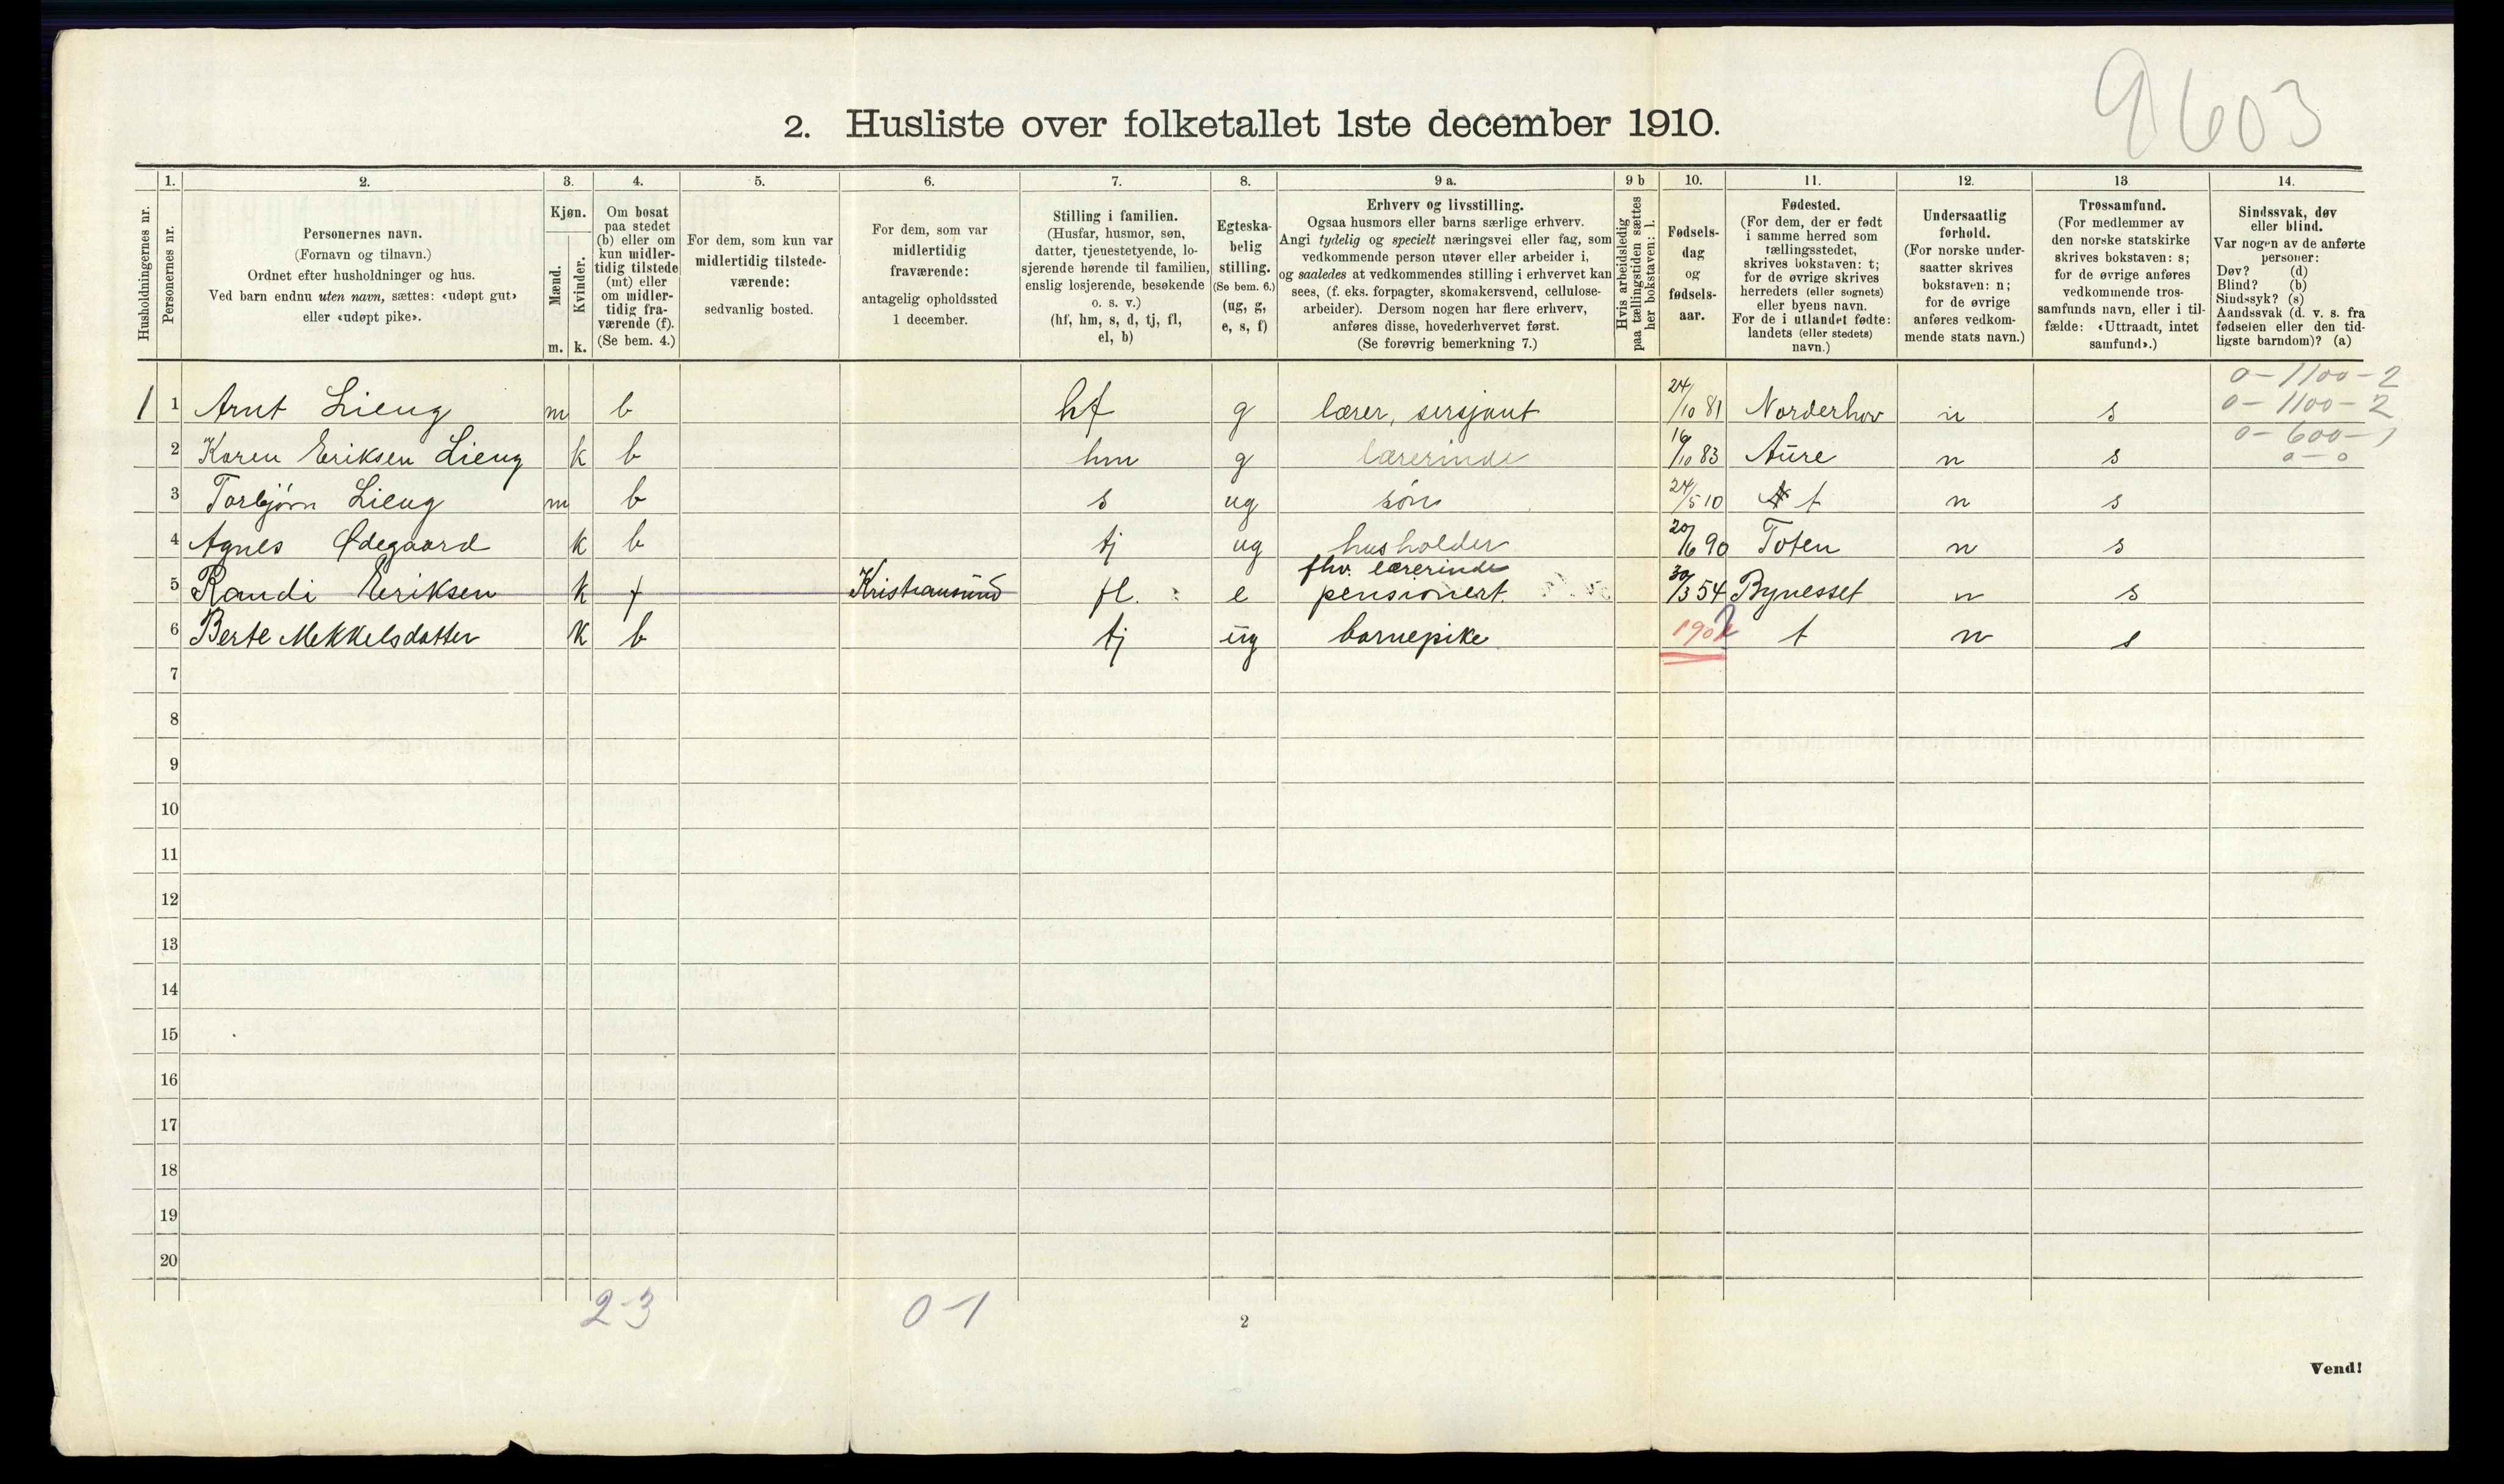 9603
2. Husliste over folketallet 1ste december 1910.
Husholdningernes nr.
1.
Personernes nr.
2.
Personernes navn.
(Fornavn og tilnavn.)
Ordnet efter husholdninger og hus.
Ved barn endnu uten navn, sættes: «udøpt gut»
eller «udøpt pike».
3.
Kjøn.
Mænd.
Kvinder.
m. k.
4.
Om bosat
paa stedet
(b) eller om
kun midler-
tidig tilstede
(mt) eller
om midler-
tidig fra-
værende (f).
(Se bem. 4.)
5.
For dem, som kun var
midlertidig tilstede-
værende:
sedvanlig bosted.
6.
For dem, som var
midlertidig
fraværende:
antagelig opholdssted
1 december.
7.
Stilling i familien.
(Husfar, husmor, søn,
datter, tjenestetyende, lo-
sjerende hørende til familien,
enslig losjerende, besøkende
o. s. v.)
(hf, hm, s, d, tj, fl,
el, b)
8.
Egteska-
belig
stilling.
(Se bem. 6.)
(ug, g,
e, s, f)
9 a.
Erhverv og livsstilling.
Ogsaa husmors eller barns særlige erhverv.
Angi tydelig og specielt næringsvei eller fag, som
vedkommende person utøver eller arbeider i,
og saaledes at vedkommendes stilling i erhvervet kan
sees, (f. eks. forpagter, skomakersvend, cellulose-
arbeider). Dersom nogen har flere erhverv,
anføres disse, hovederhvervet først.
(Se forøvrig bemerkning 7.)
9 b
Hvis arbeidsledig
paa tællingstiden sættes
her bokstaven: l.
10.
Fødsels-
dag
og
fødsels-
aar.
11.
Fødested.
(For dem, der er født
i samme herred som
tællingsstedet,
skrives bokstaven: t;
for de øvrige skrives
herredets (eller sognets)
eller byens navn.
For de i utlandet fødte:
landets (eller stedets)
navn.)
12.
Undersaatlig
forhold.
(For norske under-
saatter skrives
bokstaven: n;
for de øvrige
anføres vedkom-
mende stats navn.)
13
Trossamfund.
(For medlemmer av
den norske statskirke
skrives bokstaven: s;
for de øvrige anføres
vedkommende tros-
samfunds navn, eller i til-
fælde: «Uttraadt, intet
samfund».)
14.
Sindssvak, døv
eller blind.
Var nogen av de anførte
personer:
Døv? (d)
Blind? (b)
Sindssyk? (s)
Aandssvak (d. v. s. fra
fødselen eller den tid-
ligste barndom)? (a)
0-1100-2
1 1 Arnt Lieng m b hf g lærer, sersjant 24/10 81 Norderhov n s 0-1100-2
0-600-1
2 Karen Eriksen Lieng k b hm g lærerinde 16/10 83 Aure n s 0-0
3 Torbjørn Lieng m b s ug søn 24/5 10 t n s
4 Agnes Ødegaard k b tj ug husholder 20/6 90 Toten n s
fhv. lærerinde
5 Randi Eriksen k f Kristiansund fl. e pensionert 30/3 54 Bynesset n s
6 Berte Mekkelsdatter k b tj ug barnepike 1902 t n s
7
8
9
10
11
12
13
14
15
16
17
18
19
20
2-3 0-1
2
Vend!